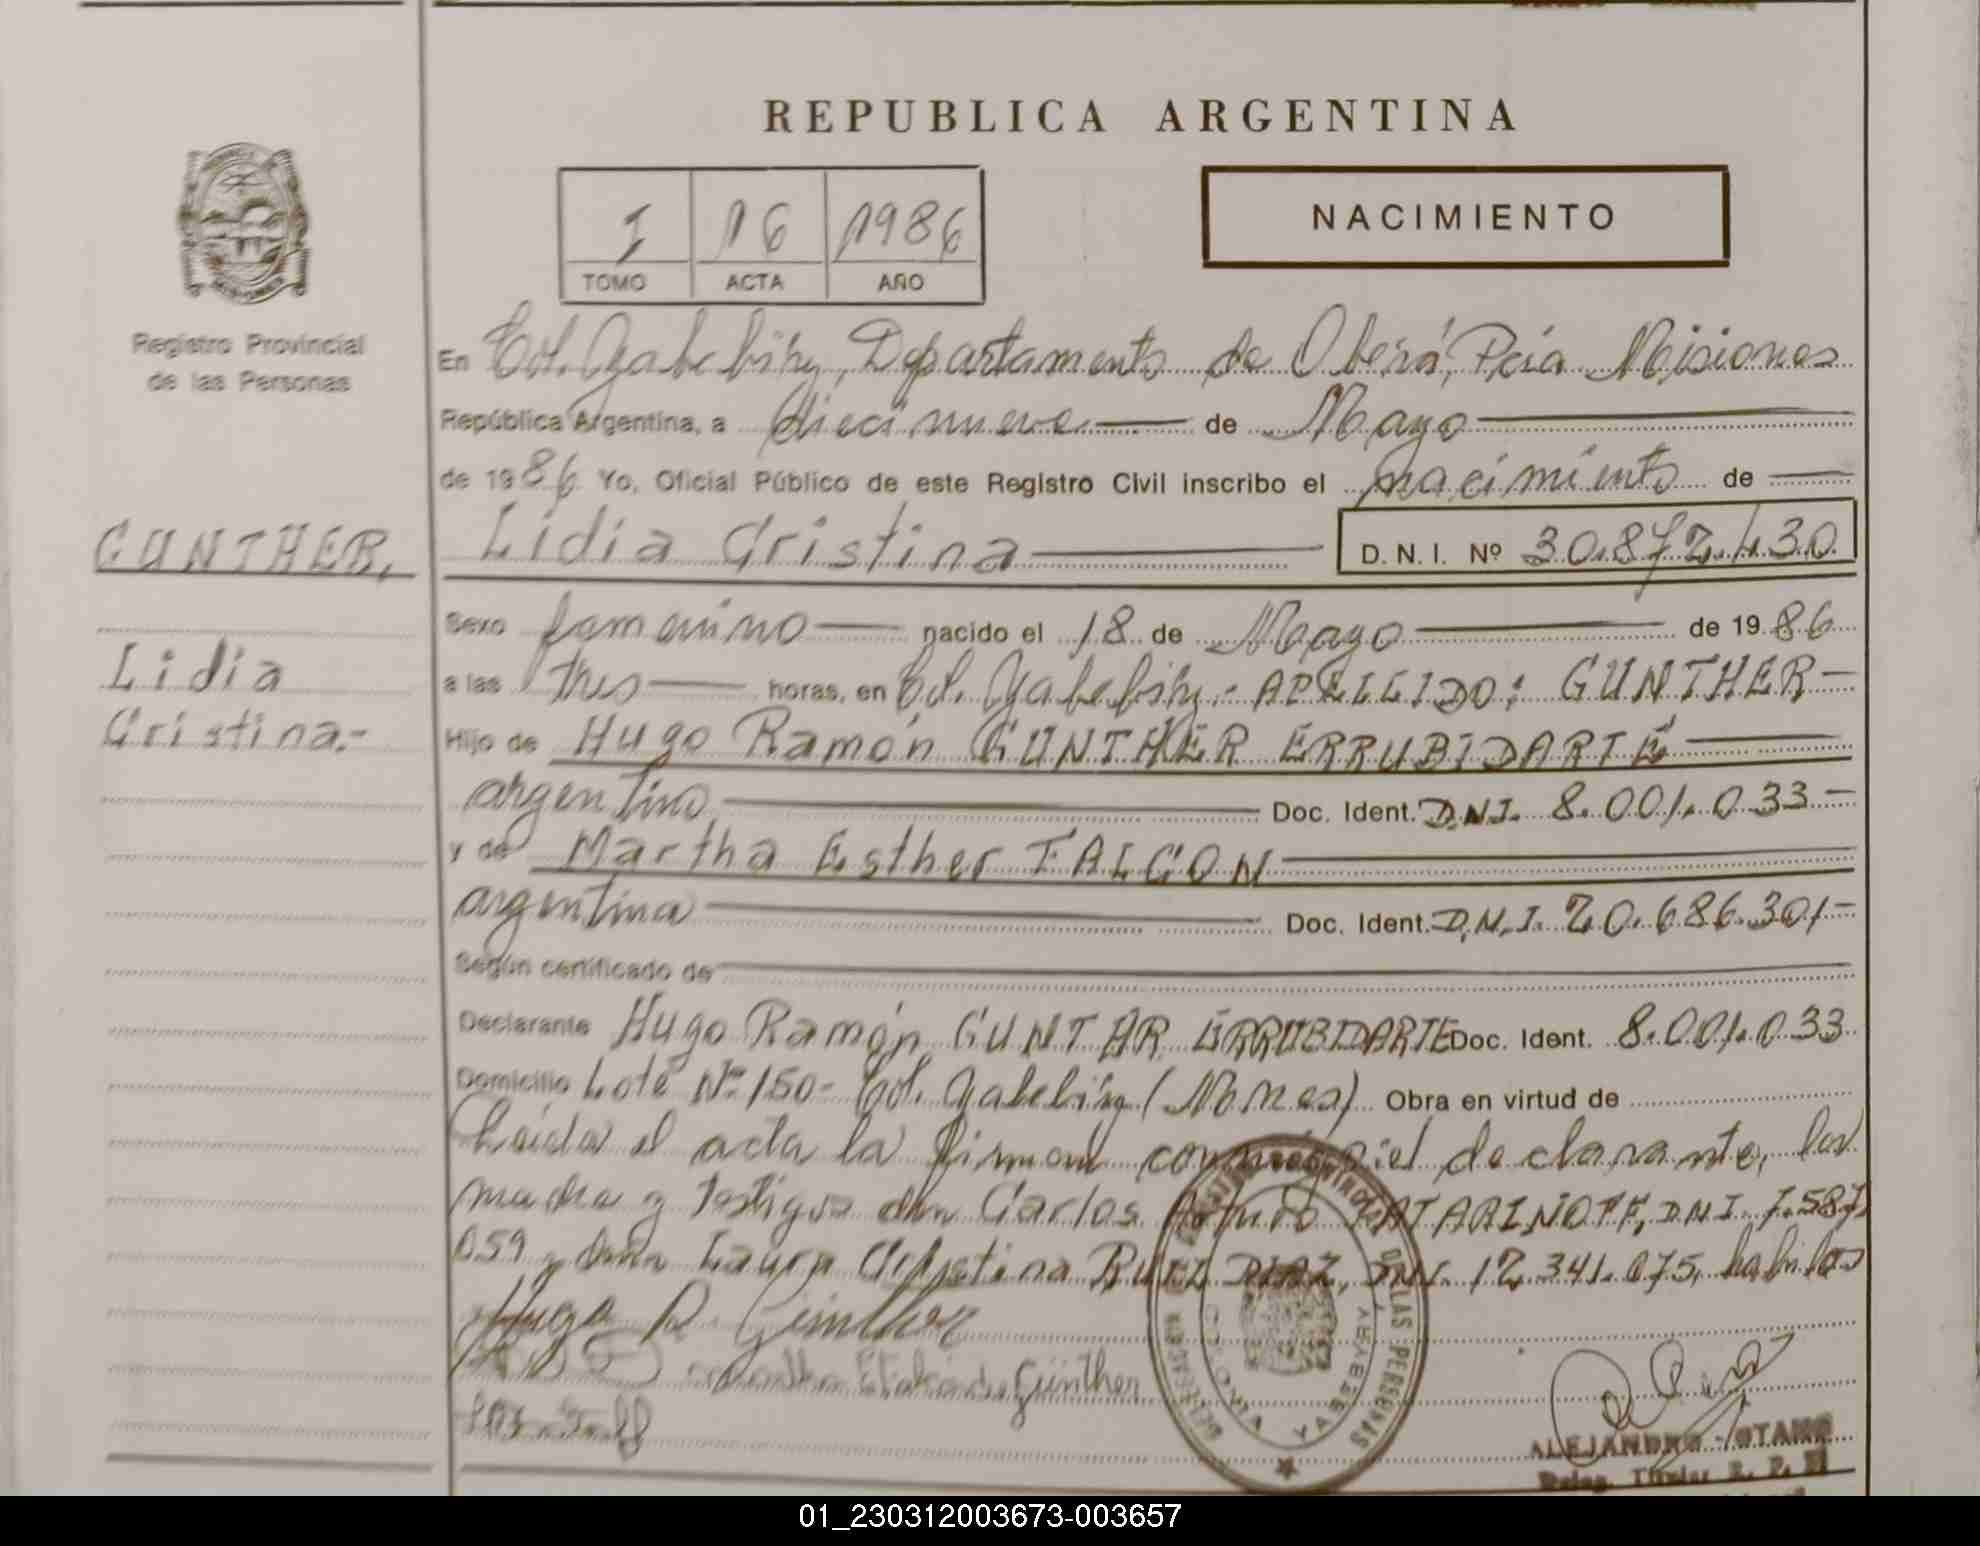 REPUBLICA ARGENTINA
I 16 1986
TOMO ACTA AÑO
NACIMIENTO
Registro Provincial
de las Personas
En Col. Yabebiry, Departamento de Oberá, Pcia Misiones
República Argentina, a diecinueve de Mayo
de 1986 Yo, Oficial Público de este Registro Civil inscribo el nacimiento de
GUNTHER,
Lidia Cristina
D.N.I. Nº 30.872.430
Lidia
Cristina.-
Sexo femenino nacido el 18 de Mayo de 1986
a las tres horas, en Col. Yabebiry.- APELLIDO: GUNTHER-
Hijo de Hugo Ramón GUNTHER ERRUBIDARTE
argentino Doc. Ident. D.N.I. 8.001.033-
y de Martha Esther FALCON
argentina Doc. Ident. D.N.I. 20.686.301-
Según certificado de
Declarante Hugo Ramón GUNTHR ERRUBIDARTE Doc. Ident. 8.001.033
Domicilio Lote Nº 150- Col. Yabebiry (Mnes). Obra en virtud de
Leída el acta la firman conmigo el declarante, la
madre y testigos don Carlos Arturo TATARINOFF, DNI. 7.587.
059 y doña Laura Cristina RUIZ DIAZ, DNI. 12.341.075, hábiles
Hugo R. Günther
de Günther
REGISTRO PROVINCIAL DE LAS PERSONAS
COLONIA YABEBIRY
ALEJANDRO OTAÑO
Deleg. Titular R. P.
01_230312003673-003657